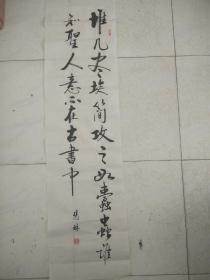 堆几尽埃简攻之如蠹虫谁
知圣人意不在古书中